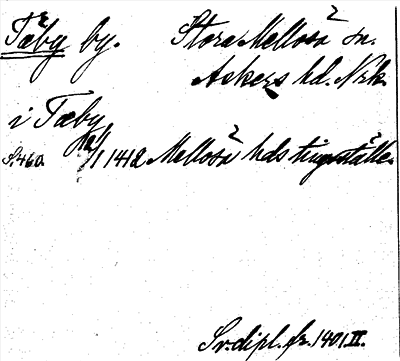 Täby by. Stora Mellösa sn.
Askers hd. Nrk.
i Tæby
S. 460 12/1 1412 Mellösa hds tingställe.
Sv. dipl. fr. 1401. II.